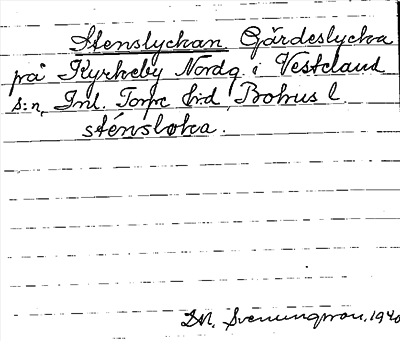 Stenslyckan Gärdeslycka
på Kyrkeby Nordg. i Vesteland
s:n, Inl. Torpe hd, Bohus l.
sténsloka.
Svenungsson, 1940